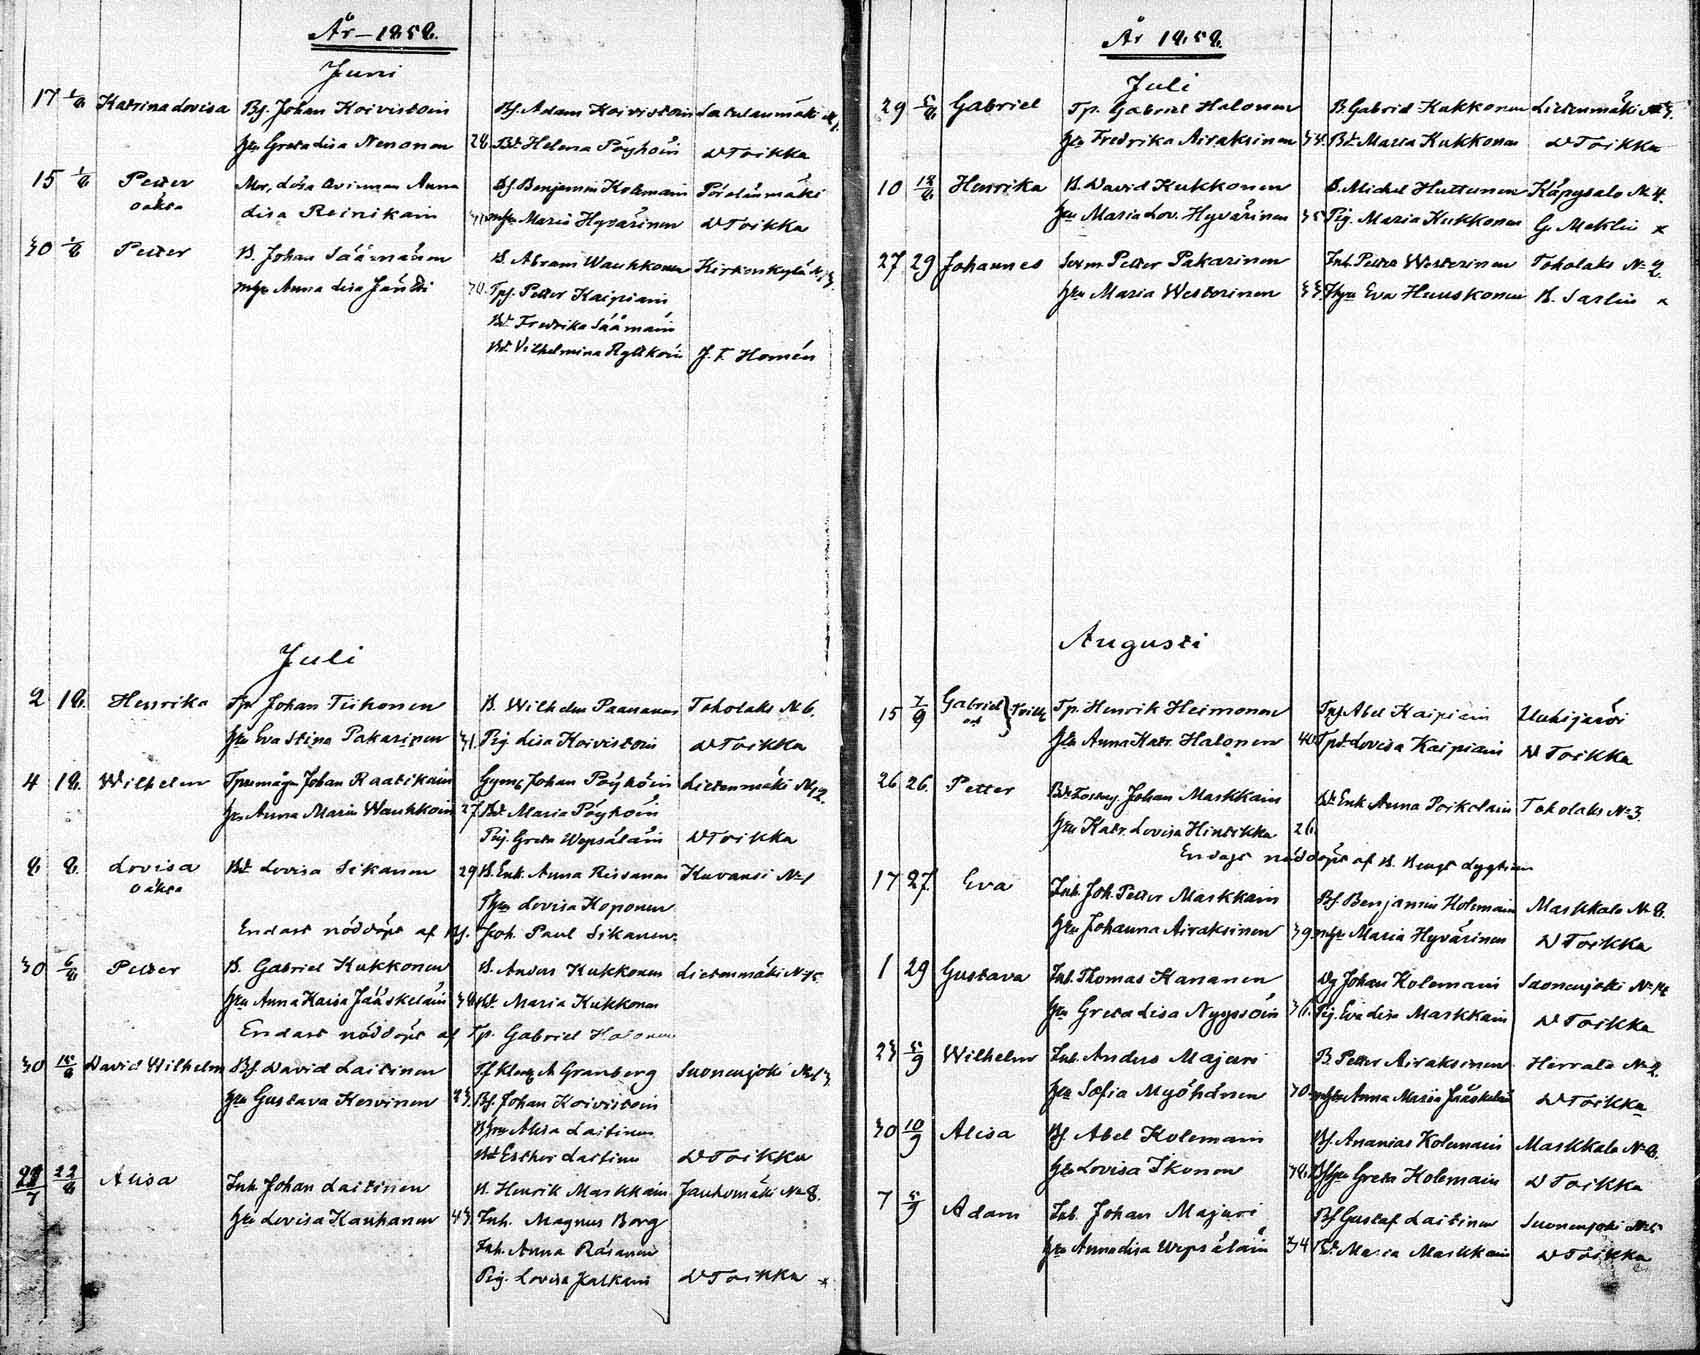 År 1858.
Juni
17 1/8 Katrina Lovisa Bf. Johan Koivistoin Bf. Adam Koivistoin Latulanmäki
Hu Greta Lisa Nenonen 28. Bd. Helena Pöyhöin W Toikka
15 1/8 Petter Lösa qvinnan Anna Bf Benjamin Kolemain Pörölänmäki
oäkta Lisa Reinikain Maria Hyvärinen W Toikka
30 1/8 Petter B. Johan Säämänen B. Abram Wauhkonen Kirkonkylä
Anna Lisa Jäntti Petter Kaipiain
Bd. Fredrika Säämäin
Bd. Vilhelmina Rytköin J. F. Homén
Juli
2 18. Henrika Tp Johan Tiihonen B. Wilhelm Paananen Toholaks N 6.
Hu Eva Stina Pakarinen 31. Pig. Lisa Koivistoin W Toikka
4 18. Wilhelm Johan Raatikain Johan Pöyhöin Lietenmäki N 12.
Hu Anna Maria Wauhkoin 27 Bd. Maria Pöyhöin
Pig. Greta Wepsäläin W Toikka
8 8. Lovisa Bd. Lovisa Sikanen 29 B. Enk. Anna Rissanen Kuvansi N 1
oäkta Lovisa Koponen
Endast nöddöpt af Bf. Joh. Paul Sikanen.
30 6/8 Petter B. Gabriel Kukkonen B. Anders Kukkonen Lietenmäki
Hu Anna Kaisa Jääskeläin Bd. Maria Kukkonen
Endast nöddöpt af Tp. Gabriel Halonen
30 15/8 David Wilhelm Bf. David Laitinen A Granberg Suonenjoki
Hu Gustava Kervinen Bf. Johan Koivistoin
Alisa Laitinen
Bd Esther Laitinen W Toikka
22/8 Alisa Inh. Johan Laitinen B. Henrik Markkain Jauhomäki N 8.
7 Hu Lovisa Kauhanen 43 Inh. Magnus Borg
Inh. Anna Räsänen
Pig. Lovisa Jalkain W Toikka x
År 1858.
Juli
29 5/8 Gabriel Tp. Gabriel Halonen B. Gabriel Kukkonen Lietenmäki
Hu Fredrika Airaksinen Bd. Maria Kukkonen W Toikka
10 18/8 Henrika B. David Kukkonen B. Michel Huttunen Käpysalo N 4.
Hu Maria Lov. Hyvärinen 35 Pig. Maria Kukkonen G. Mehlin x
27 29 Johannes Petter Pakarinen Inh. Petter Westerinen Toholaks N 2
Hu Maria Westerinen 33. Eva Huuskonen B. Sarlin x
Augusti
15 7/9 Gabriel Tp. Henrik Heimonen Abel Kaipiain Uuhijärvi
Hu Anna Katr. Halonen 40 Lovisa Kaipiain W Toikka
26 26. Petter Johan Markkain Bd. Enk Anna Poikolain Toholaks N 3.
Hu Katr. Lovisa Hintikka 26.
Endast nöddöpt af B. Bengt Lyytinen
17 27 Eva Inh. Joh. Petter Markkain Bf Benjamin Kolemain Markkala N 8.
Hu Johanna Airaksinen 39 Maria Hyvärinen W Toikka
1 29 Gustava Inh. Thomas Kananen Dg Johan Kolemain Suonenjoki N 14
Hu Greta Lisa Nyyssöin 36. Pig. Eva Lisa Markkain W Toikka
23 5/9 Wilhelm Inh. Anders Majuri B Petter Airaksinen Herrala N 2.
Hu Sofia Myöhänen 30 Anna Maria Jääskeläin W Toikka
30 10/9 Alisa Bf Abel Kolemain Bf. Ananias Kolemain Markkala N 8.
Hu Lovisa Ikonen Greta Kolemain W Toikka
7 5/9 Adam Inh. Johan Majuri Bf Gustaf Laitinen Suonenjoki
Hu Anna Lisa Wepsäläin 34 Bd. Maria Markkain W Toikka